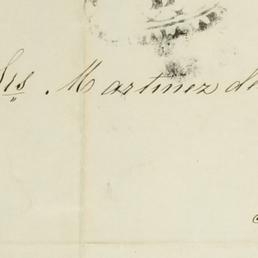 Srs Martinez de